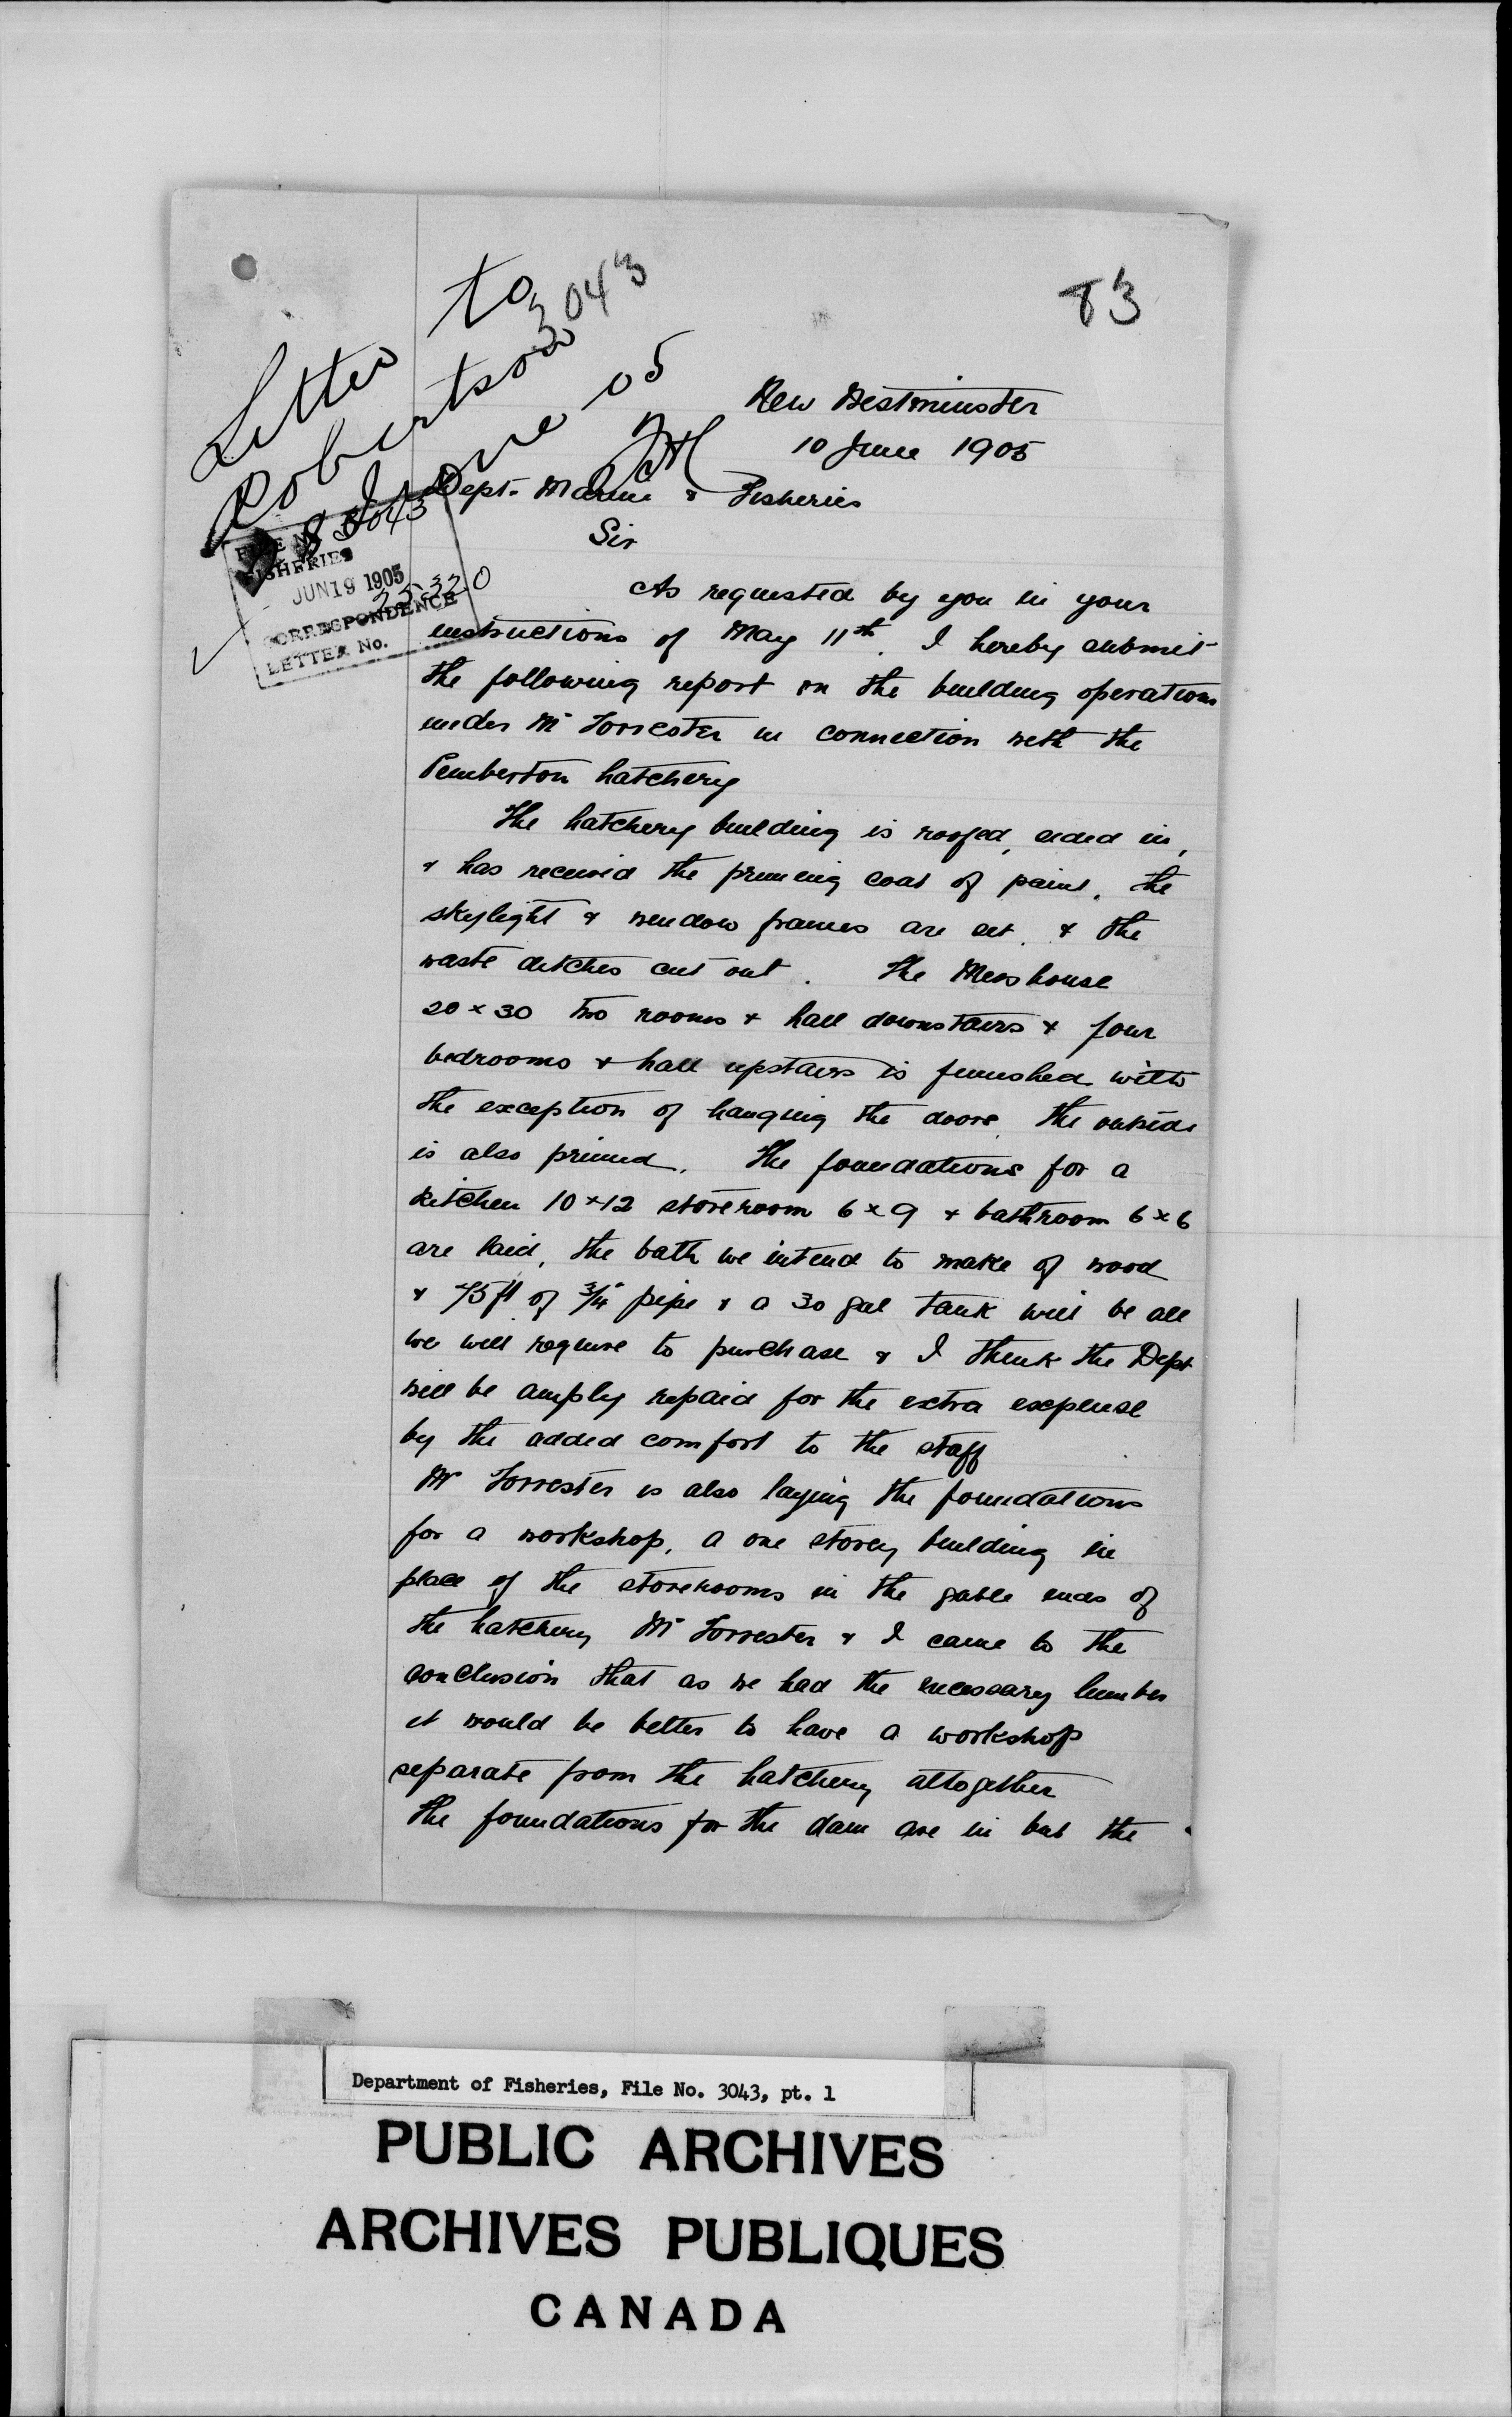 to
3043
83
Letter
Robertson
June 05
New Westminster
10 June 1905
Dept. Marine & Fisheries
3043
FILE No.
FISHERIES
JUN 19 1905
CORRESPONDENCE
LETTER No.
Sir
As requested by you in your
instructions of May 11th. I hereby submit
the following report on the building operations
under Mr Forrester in connection with the
Pemberton hatchery
The hatchery building is roofed, sided in,
& has received the priming coat of paint. the
skylight & window frames are set. & the
waste ditches cut out. The Messhouse
20 x 30 two rooms & hall downstairs & four
bedrooms & hall upstairs is finished with
the exception of hanging the doors. the outside
is also primed. The foundations for a
kitchen 10 x 12 storeroom 6 x 9 & bathroom 6 x 6
are laid, the bath we intend to make of wood
& 75 ft of 3/4" pipe & a 30 gal tank will be all
we will require to purchase & I think the Dept
will be amply repaid for the extra expense
by the added comfort to the staff
Mr Forrester is also laying the foundations
for a workshop, a one storey building in
place of the storerooms in the gable ends of
the hatchery Mr Forrester & I came to the
conclusion that as we had the necessary lumber
it would be better to have a workshop
separate from the hatchery altogether
The foundations for the dam are in but the
Department of Fisheries, File No. 3043, pt. 1
PUBLIC ARCHIVES
ARCHIVES PUBLIQUES
CANADA